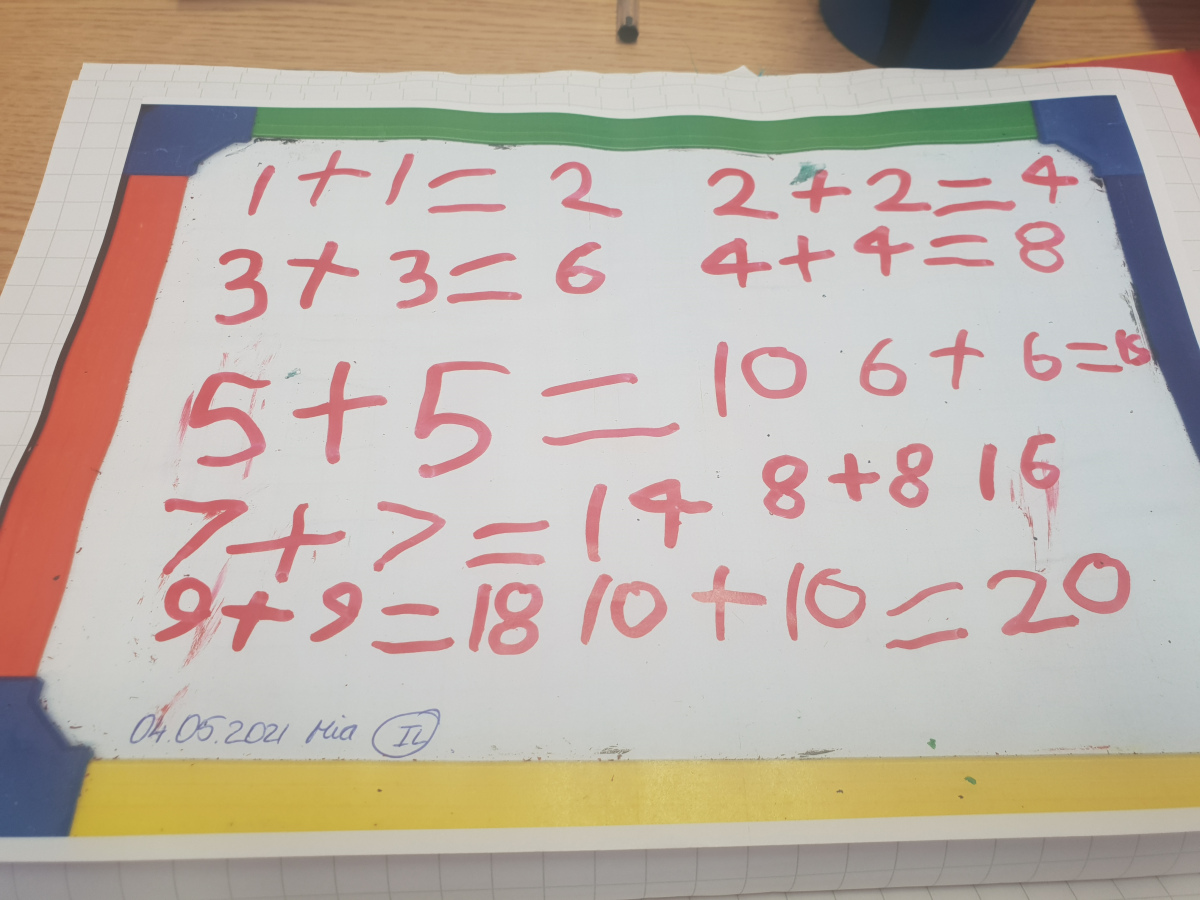 1+1=2 2+2=4
3+3=6 4+4=8
5+5=10 6+6=
7+7=14 8+8 16
9+9=18 10+10=20
04.05.2021 Mia IL